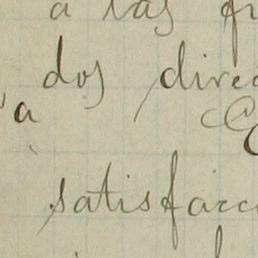 a las
dos direc
a
satisfacc